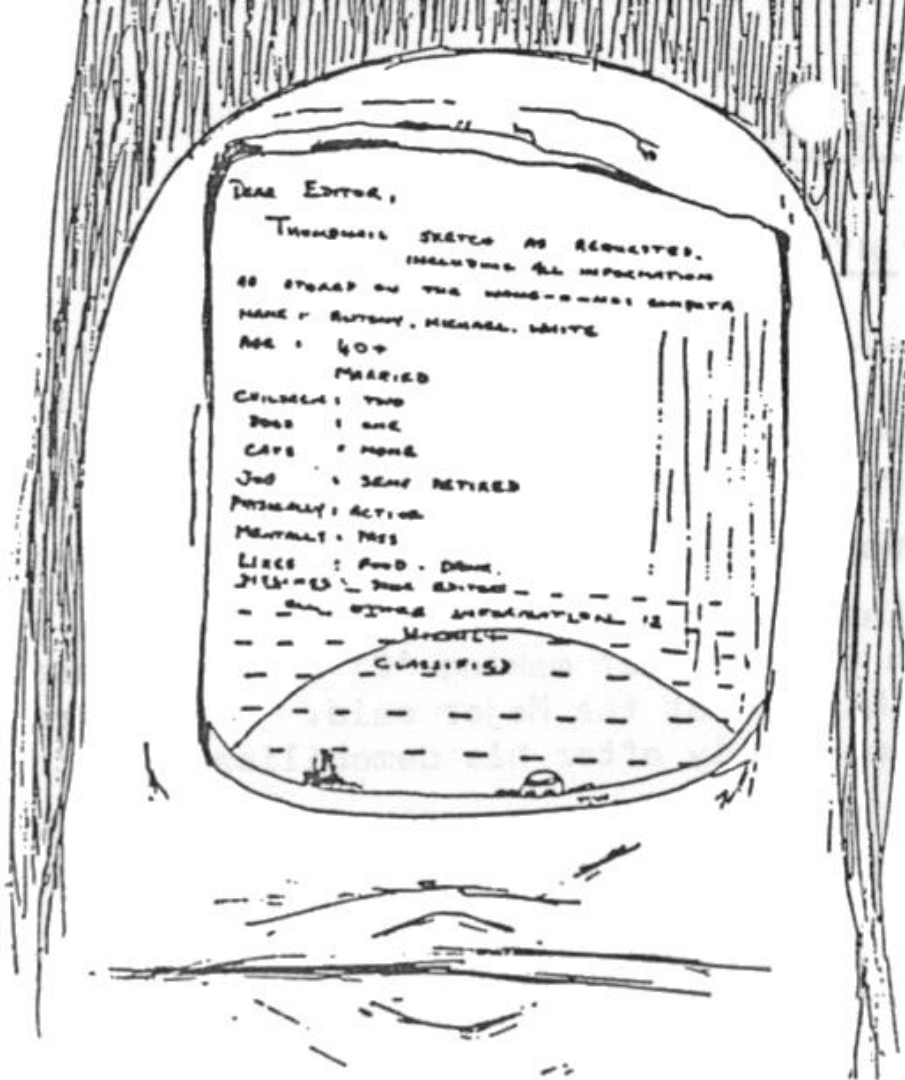 DEAR EDITOR,
THUMBNAIL SKETCH AS REQUESTED.
INCLUDING ALL INFORMATION
AS STORED ON THE COMPUTA
NAME : ANTONY. MICHAEL. WHITE
AGE : 40+
MARRIED
CHILDREN : TWO
DOGS : ONE
CATS : NONE
JOB : SEMI RETIRED
PHYSICALLY : ACTIVE
MENTALLY : PASS
LIKES : FOOD. DRINK.
DISLIKES : EDITORS
ALL OTHER INFORMATION IS
HIGHLY
CLASSIFIED